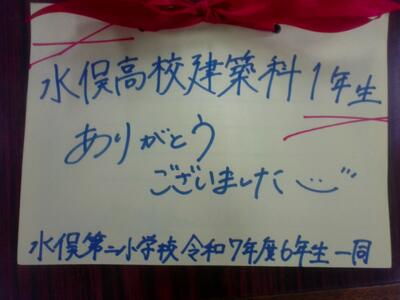 水俣高校建築科1年生
ありがとう
ございました
水俣第二小学校令和7年度6年生一同